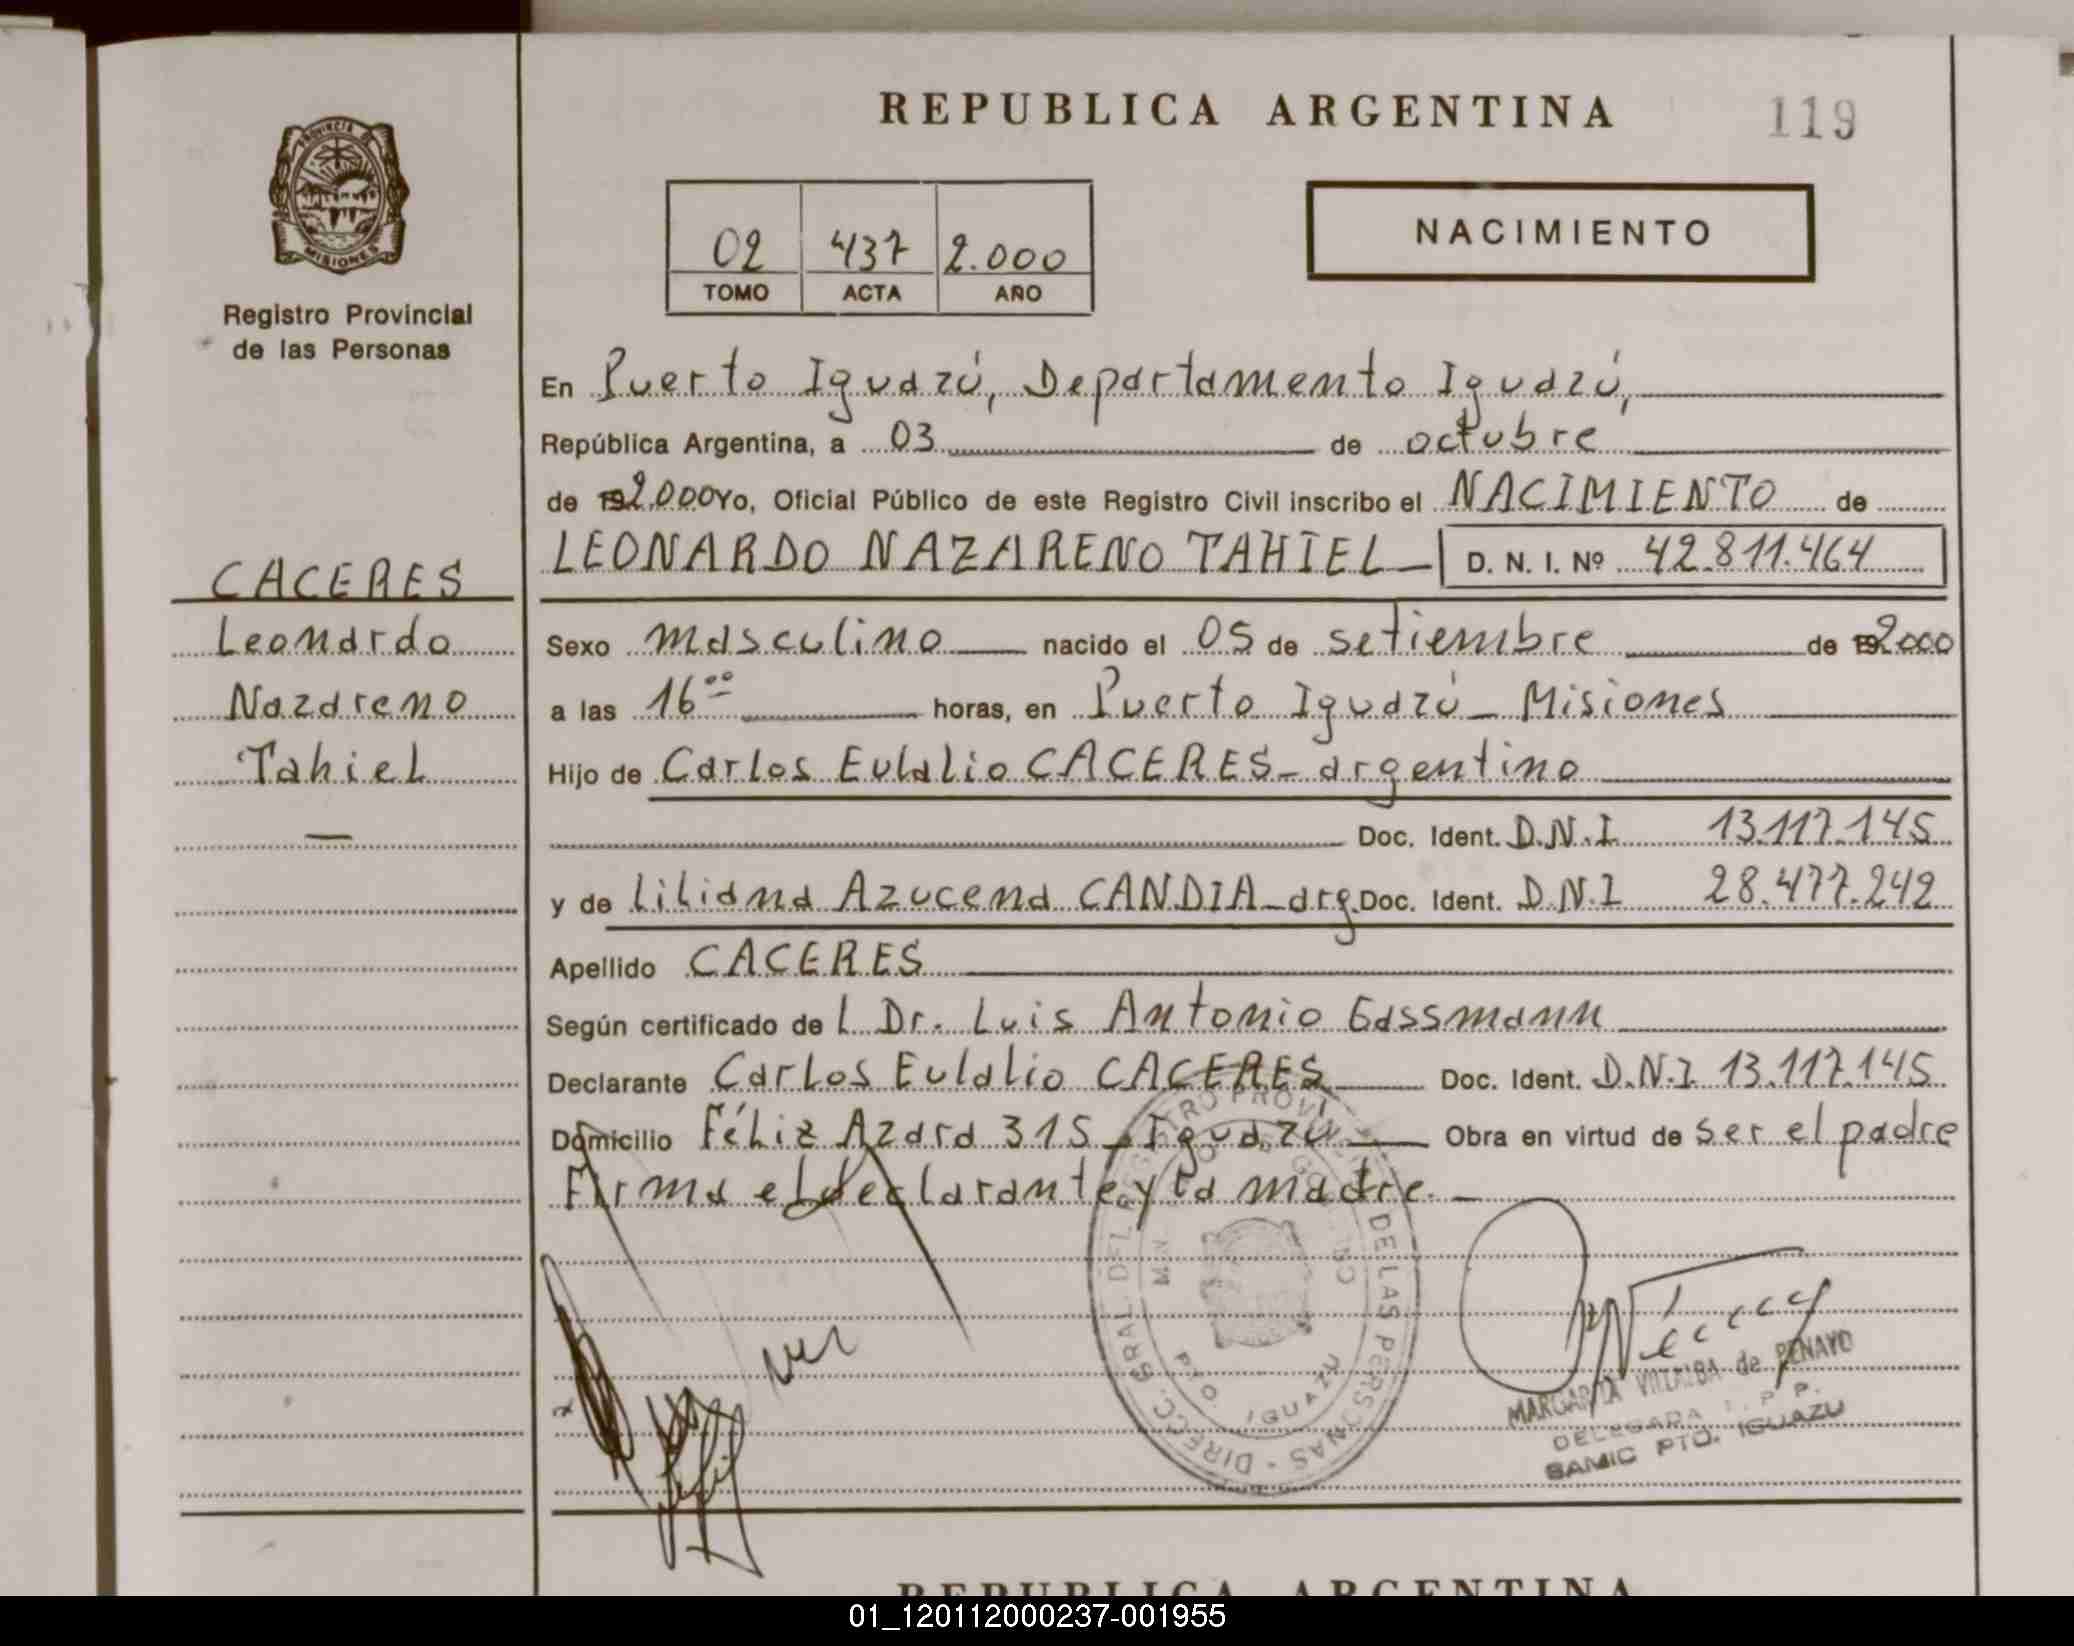 REPUBLICA ARGENTINA
119
PROVINCIA DE
MISIONES
Registro Provincial
de las Personas
02 437 2.000
TOMO ACTA AÑO
NACIMIENTO
En Puerto Iguazú, Departamento Iguazú,
República Argentina, a 03 de octubre
de 192.000 Yo, Oficial Público de este Registro Civil inscribo el NACIMIENTO de
LEONARDO NAZARENO TAHIEL D. N. I. Nº 42.811.464
CACERES
Leonardo
Nazareno
Tahiel
Sexo masculino nacido el 05 de setiembre de 192000
a las 16ºº horas, en Puerto Iguazú - Misiones
Hijo de Carlos Eulalio CACERES - argentino
Doc. Ident. D.N.I 13.117.145
y de Liliana Azucena CANDIA - arg. Doc. Ident. D.N.I 28.477.242
Apellido CACERES
Según certificado de l Dr. Luis Antonio Gassmann
Declarante Carlos Eulalio CACERES Doc. Ident. D.N.I. 13.117.145
Domicilio Féliz Azara 315 - Iguazú Obra en virtud de ser el padre
Firma el declarante y la madre.
DIRECC. GRAL. DEL REGISTRO PROVINCIAL DE LAS PERSONAS
PTO. IGUAZU
MARGARITA VILLALBA de PENAYO
DELEGADA
SAMIC PTO. IGUAZU
REPUBLICA ARGENTINA
01_120112000237-001955